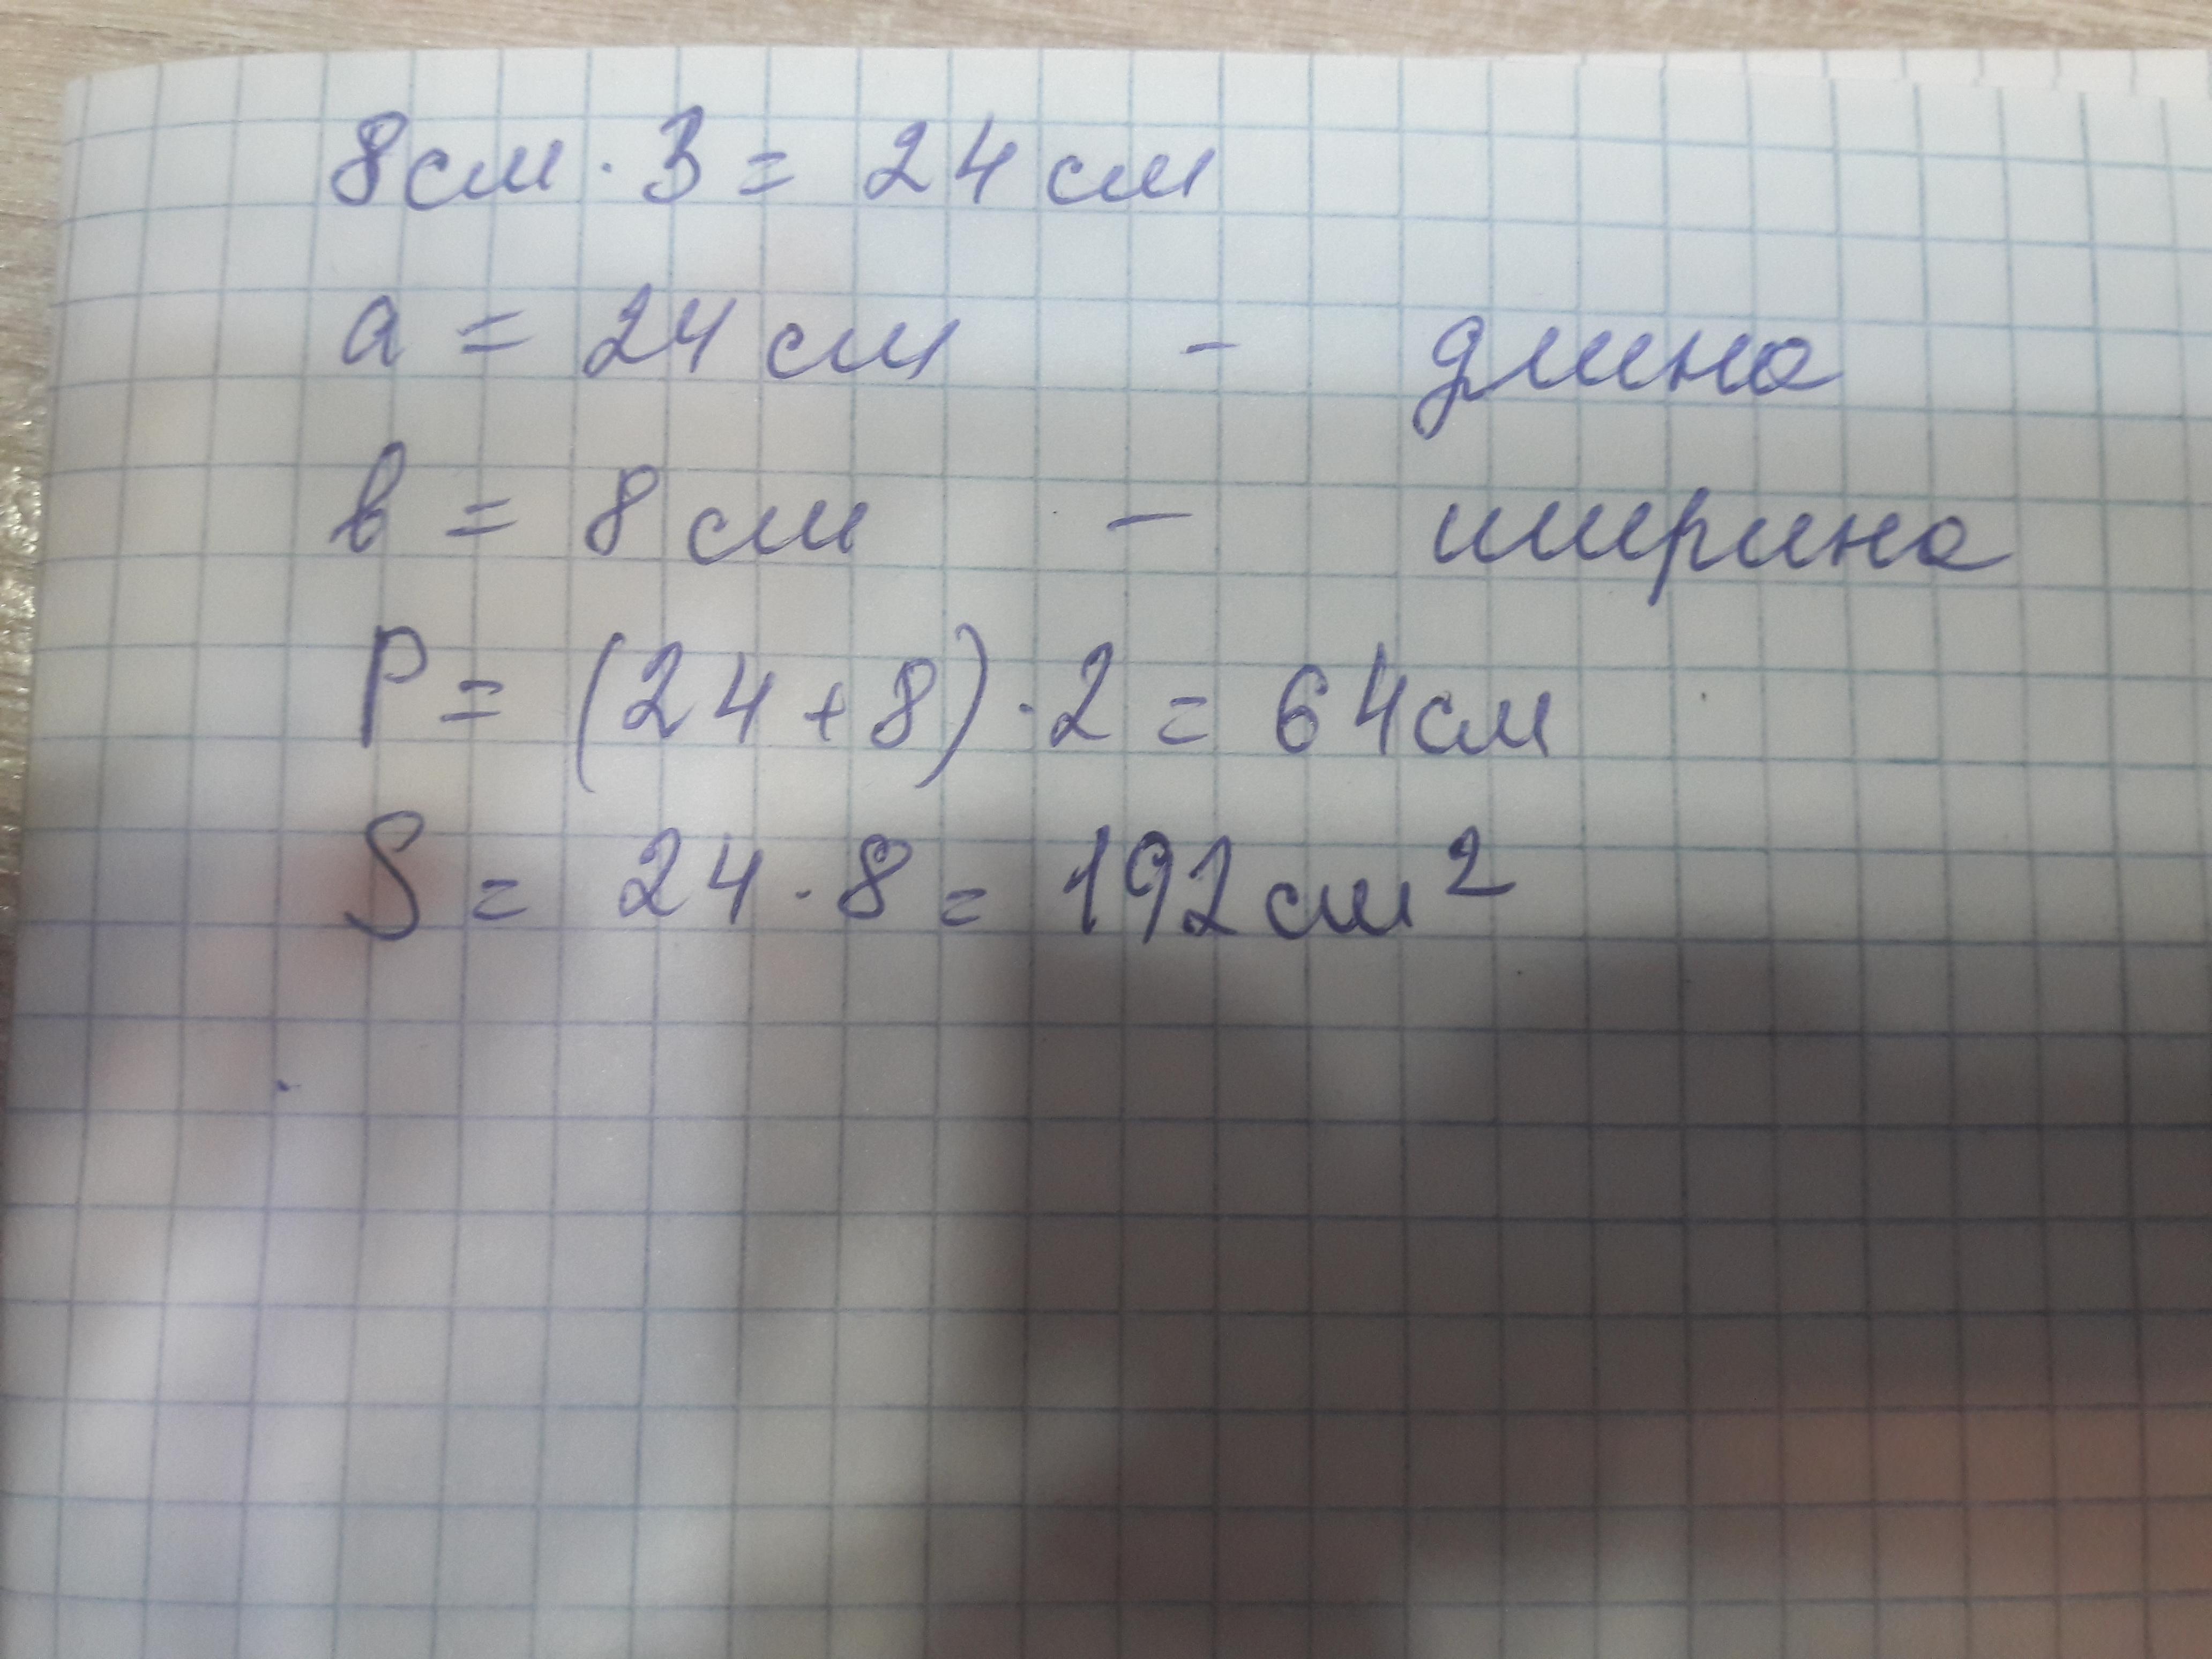 8см · 3 = 24 см
a = 24 см - длина
в = 8 см - ширина
P = (24 + 8) · 2 = 64см
S = 24 · 8 = 192 см²